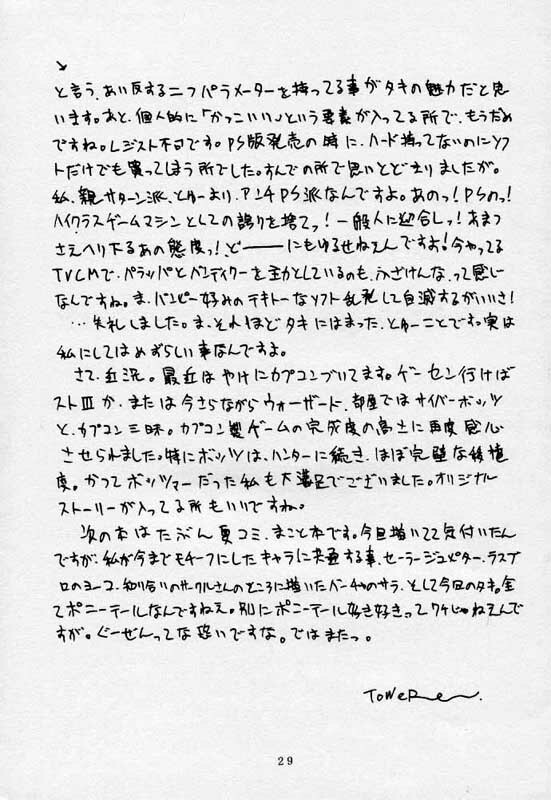 ↓
と言う、あい反する二つパラメーターを持ってる事がタキの魅力だと思
います。あと、個人的に「かっこいい」という要素が入ってる所で、もうだめ
ですね。レジスト不可です。PS版発売の時に、ハード持ってないのにソフ
トだけでも買ってしまう所でした。すんでの所で思いとどまりましたが。
私、親サターン派、とゆーより、アンチPS派なんですよ。あのっ!PSのっ!
ハイクラスゲームマシンとしての誇りを捨てっ!一般人に迎合しっ!あまつ
さえへり下るあの態度っ!、ど───にもゆるせねえんですよ!今やってる
TVCMで、パラッパとバンディクーを主力としているのも、ふざけんな、って感じ
なんですね。ま、バンピー好みのテキトーなソフト乱発して自滅するがいいさ!
…失礼しました。ま、それほどタキにはまった、とゆーことですっ。実は
私にしてはめずらしい事なんですよ。
さて、近況。最近はやけにカプコンづいてます。ゲーセン行けば
ストⅢか、または今さらながらウォーザード、部屋ではサイバーボッツ
と、カプコン三昧。カプコン製ゲームの完成度の高さに再度感心
させられました。特にボッツは、ハンターに続き、ほぼ完璧な移植
度。かつてボッツマーだった私も大満足でございました。オリジナル
ストーリーが入ってる所もいいですね。
次の本はたぶん夏コミ、まこと本です。今回描いてて気付いたん
ですが、私が今までモチーフにしたキャラに共通する事、セーラージュピター、ラスブ
ロのヨーコ、知り合いのサークルさんのところに描いたバーチャのサラ、として今回のタキ。全
てポニーテールなんですねえ。別にポニーテール好き好きってワケじゃねえんで
すが。ぐーぜんってな恐いですな。ではまたっ。
TOWeRen.
29